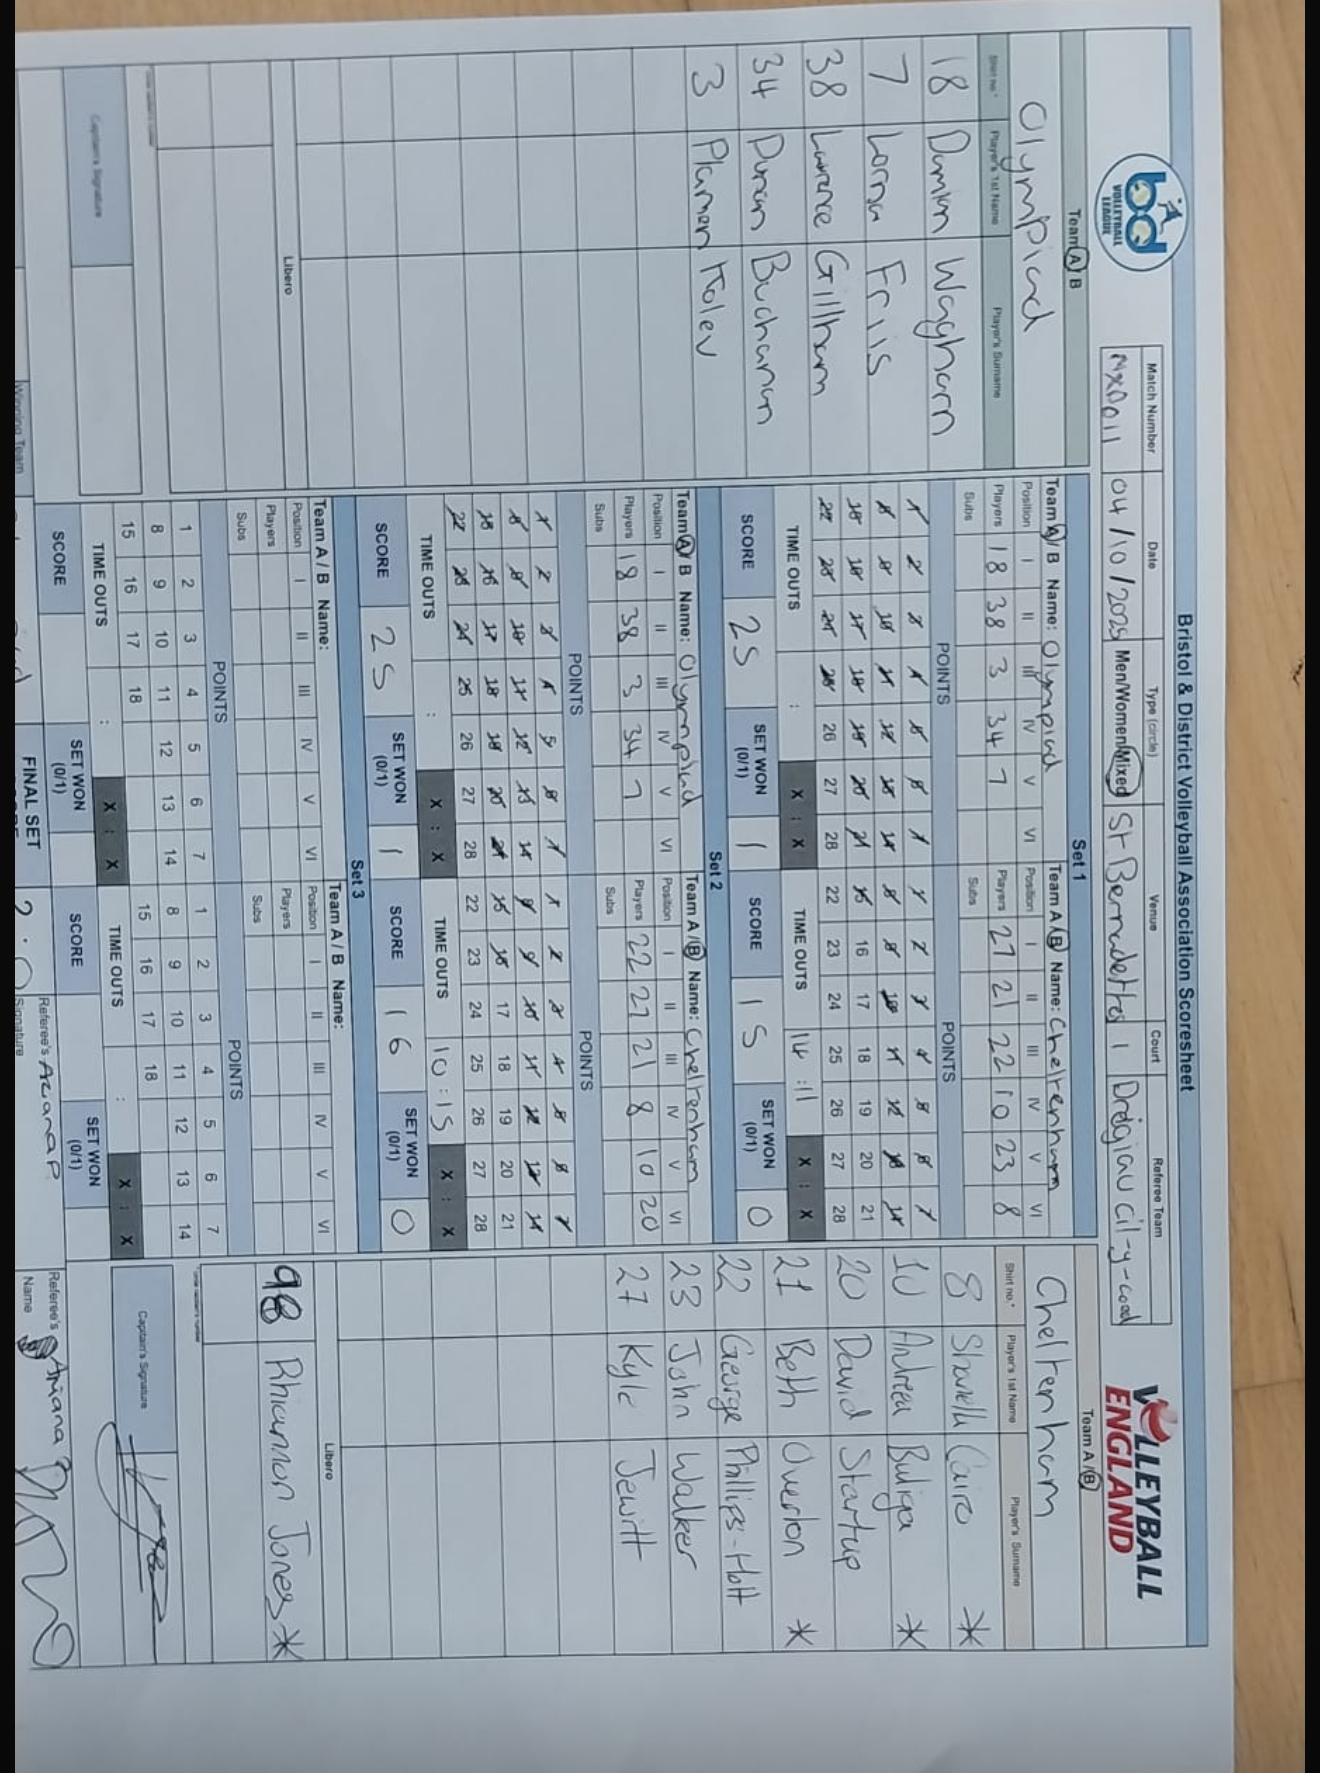 Bristol & District Volleyball Association Scoresheet
bd VOLLEYBALL LEAGUE
VOLLEYBALL ENGLAND
Match Number Date Type (circle) Venue Court Referee Team
MXD011 04/10/2025 Men/Women/Mixed St Bernadettes 1
Team A / B
Olympiad
Shirt no.* Player's 1st Name Player's Surname
18 Damian Waghorn
7 Lorna Friis
38 Lawrence Gillham
34 Duncan Buchanan
3 Plamen Kolev
Libero
Captain's Signature
Set 1
Team A / B Name: Olympiad
Position I II III IV V VI
Players 18 38 3 34 7
Subs
POINTS
1 2 3 4 5 6 7
8 9 10 11 12 13 14
15 16 17 18 19 20 21
22 23 24 25 26 27 28
TIME OUTS : X : X
SCORE 25 SET WON (0/1) 1
Team A / B Name: Cheltenham
Position I II III IV V VI
Players 27 21 22 10 23 8
Subs
POINTS
1 2 3 4 5 6 7
8 9 10 11 12 13 14
15 16 17 18 19 20 21
22 23 24 25 26 27 28
TIME OUTS 14 : 11 X : X
SCORE 15 SET WON (0/1) 0
Set 2
Team A / B Name: Olympiad
Position I II III IV V VI
Players 18 38 3 34 7
Subs
POINTS
1 2 3 4 5 6 7
8 9 10 11 12 13 14
15 16 17 18 19 20 21
22 23 24 25 26 27 28
TIME OUTS : X : X
SCORE 25 SET WON (0/1) 1
Team A / B Name: Cheltenham
Position I II III IV V VI
Players 22 27 21 8 10 20
Subs
POINTS
1 2 3 4 5 6 7
8 9 10 11 12 13 14
15 16 17 18 19 20 21
22 23 24 25 26 27 28
TIME OUTS 10 : 15 X : X
SCORE 16 SET WON (0/1) 0
Set 3
Team A / B Name:
Position I II III IV V VI
Players
Subs
POINTS
1 2 3 4 5 6 7
8 9 10 11 12 13 14
15 16 17 18
TIME OUTS : X : X
SCORE SET WON (0/1)
Team A / B Name:
Position I II III IV V VI
Players
Subs
POINTS
1 2 3 4 5 6 7
8 9 10 11 12 13 14
15 16 17 18
TIME OUTS : X : X
SCORE SET WON (0/1)
Team A / B
Cheltenham
Shirt no.* Player's 1st Name Player's Surname
8 Cairo *
10 Andreea Buliga *
20 David Startup
21 Beth Overton *
22 George Phillips-Holt
23 John Walker
27 Kyle Jewitt
Libero
98 Rhiannon Jones *
Captain's Signature
Winning Team FINAL SET
Referee's Signature
Referee's Name Ariana P